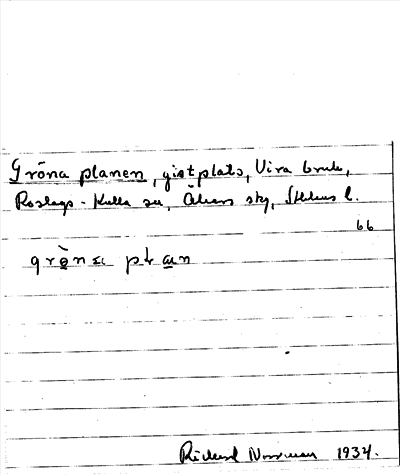 Gröna planen, gistplats, Vira bruk,
Roslags-Kulla sn, Åkers sky, Sthlms l.
66
grö̀na plan
Rickard Norrman 1934.